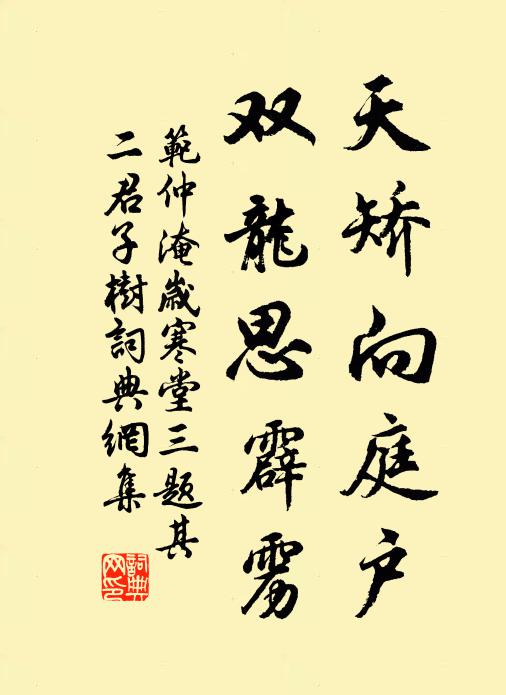 夭矫向庭户
双龍思霹雳
範仲淹歲寒堂三題其
二君子樹詞典網集
詞典
网印